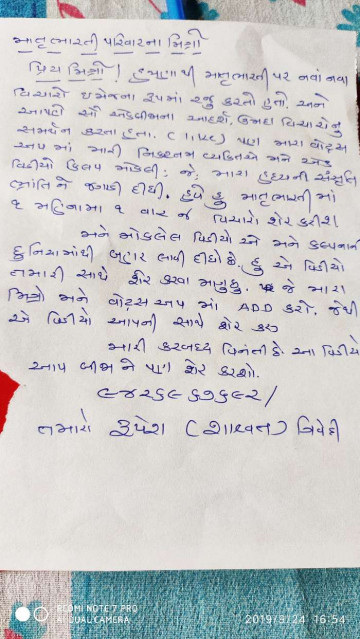 માતૃભારતી પરિવારના મિત્રો
પ્રિય મિત્રો! હમણાં પી માતૃભારતી પર નવાં નવા
વિચારો ઇમેજના રૂપમાં રજુ કરતો હતો. અને
આપણે સૌ એકબીજાના આદર્શ, ઉમદા વિચારોનું
સમર્થન કરતા હતા. (Like) પણ મારા વોટ્સ
અપ માં મારી નિકટતમ વ્યક્તિએ મને એક
વિડીયો ક્લિપ મોકલી; જે; મારા હૃદયની સંસુપ્ત
ભ્રાંતિને જગાડી દીધી. હવે હું માતૃભારતી માં
૧ મહિનામાં ૧ વાર જ વિચારો શેર કરીશ
મને મોકલેલ વિડીયો એ મને કલ્પનાની
દુનિયામાંથી બહાર લાવી દીધો છે. હું એ વિડીયો
તમારી સાથે શેર કરવા માગુ છું. જે મારા
મિત્રો મને વોટ્સ અપ માં ADD કરો. જેથી
એ વિડીયો આપની સાથે શેર કરૂ
મારી કરબધ્ધ વિનંતી કે આ વિડીયો
આપ બીજાને પણ શેર કરશો.
૯૪૨૬૯૬૭૬૯૨/
તમારો રૂપેશ (શાશ્વત) ત્રિવેદી
REDMI NOTE 7 PRO
AI DUAL CAMERA
2019/9/24 16:54